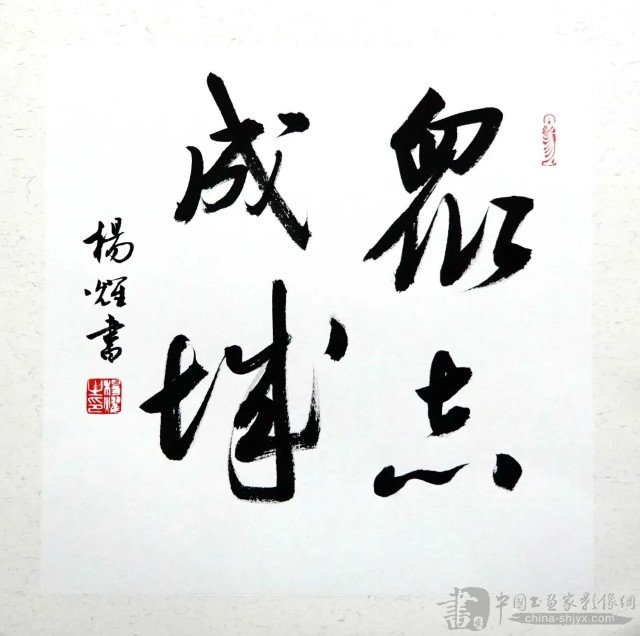 眾志
成城
楊耀書
書 中國书画家影像網
china-shjyx.com